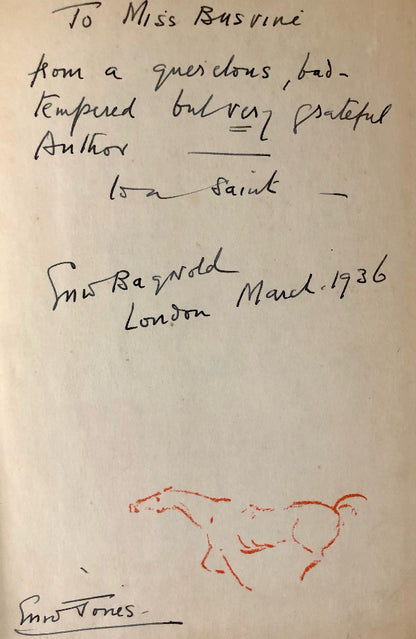 To Miss Busvine
from a querelous, bad-
tempered but very grateful
Author
to a Saint —
Enid Bagnold
London March. 1936
Enid Jones -